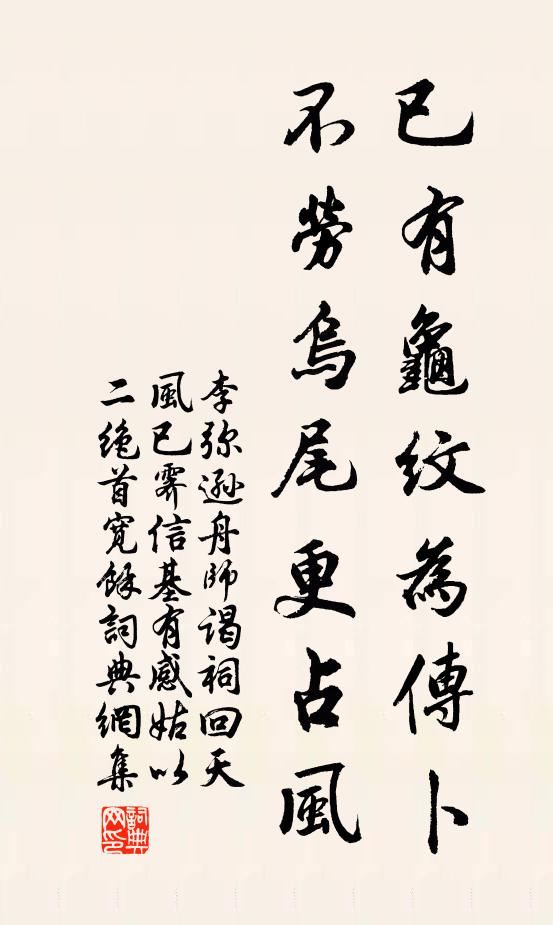 已有龜紋為傳卜
不勞烏尾更占風
李弥遜舟師謁祠回天
風已霽信基有感姑以
二絶首寬餘詞典網集
詞典網印